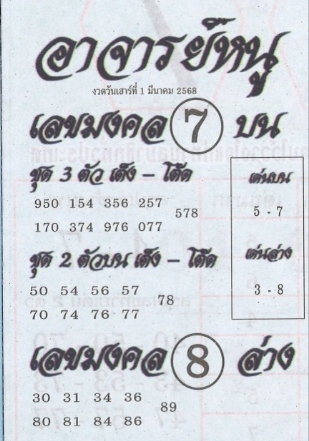 อาจารย์หนู
งวดวันเสาร์ที่ 1 มีนาคม 2568
เลขมงคล 7 บน
ชุด 3 ตัว เต็ง - โต๊ด
950 154 356 257
578
170 374 976 077
เด่นบน
5 - 7
ชุด 2 ตัวบน เต็ง - โต๊ด
50 54 56 57
78
70 74 76 77
เด่นล่าง
3 - 8
เลขมงคล 8 ล่าง
30 31 34 36
89
80 81 84 86